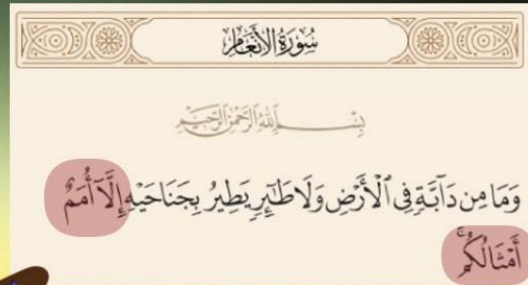 سُورَةُ الأَنْعَام
بِسْمِ اللَّهِ الرَّحْمَٰنِ الرَّحِيمِ
وَمَا مِن دَآبَّةٍ فِى ٱلْأَرْضِ وَلَا طَـٰٓئِرٍ يَطِيرُ بِجَنَاحَيْهِ إِلَّآ أُمَمٌ
أَمْثَالُكُم ۚ